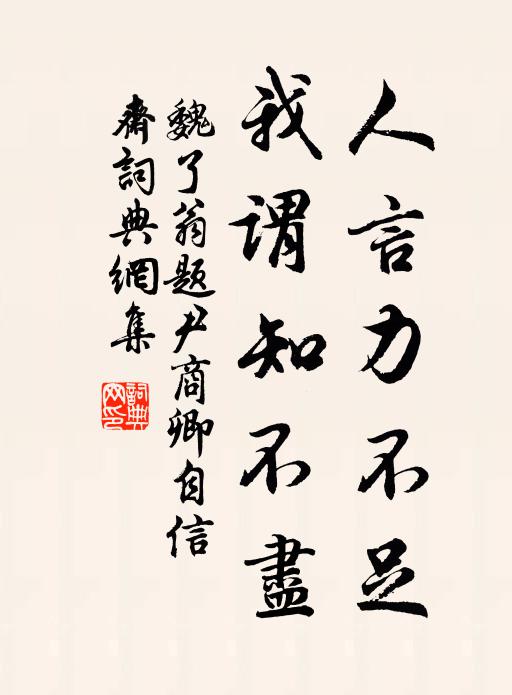 人言力不足
我谓知不盡
魏了翁题尹商卿自信
齋詞典網集
詞典网印